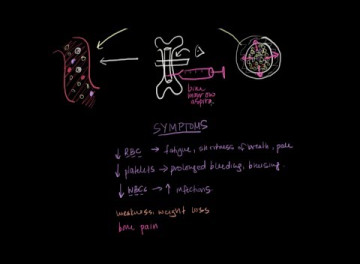 bone
marrow
aspira
SYMPTOMS
↓ RBC → fatigue, shortness of breath, pale
↓ platelets → prolonged bleeding, bruising.
↓ WBCs → ↑ infections.
weakness, weight loss
bone pain